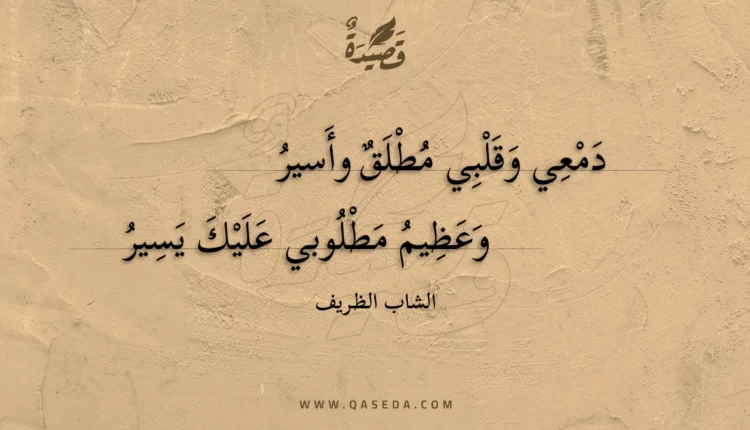 قَصِيدَةٌ
دَمْعِي وَقَلْبِي مُطْلَقٌ وأَسيرُ
وَعَظِيمُ مَطْلُوبي عَلَيْكَ يَسِيرُ
الشاب الظريف
WWW.QASEDA.COM